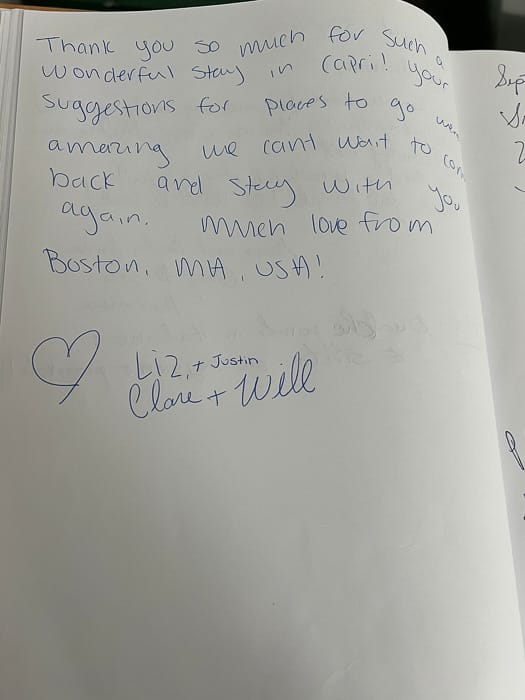 Thank you so much for such a
wonderful stay in Capri! your
suggestions for places to go were
amazing we cant wait to come
back and stay with you
again. Much love from
Boston, MA, USA!
Liz, + Justin
Clare + Will